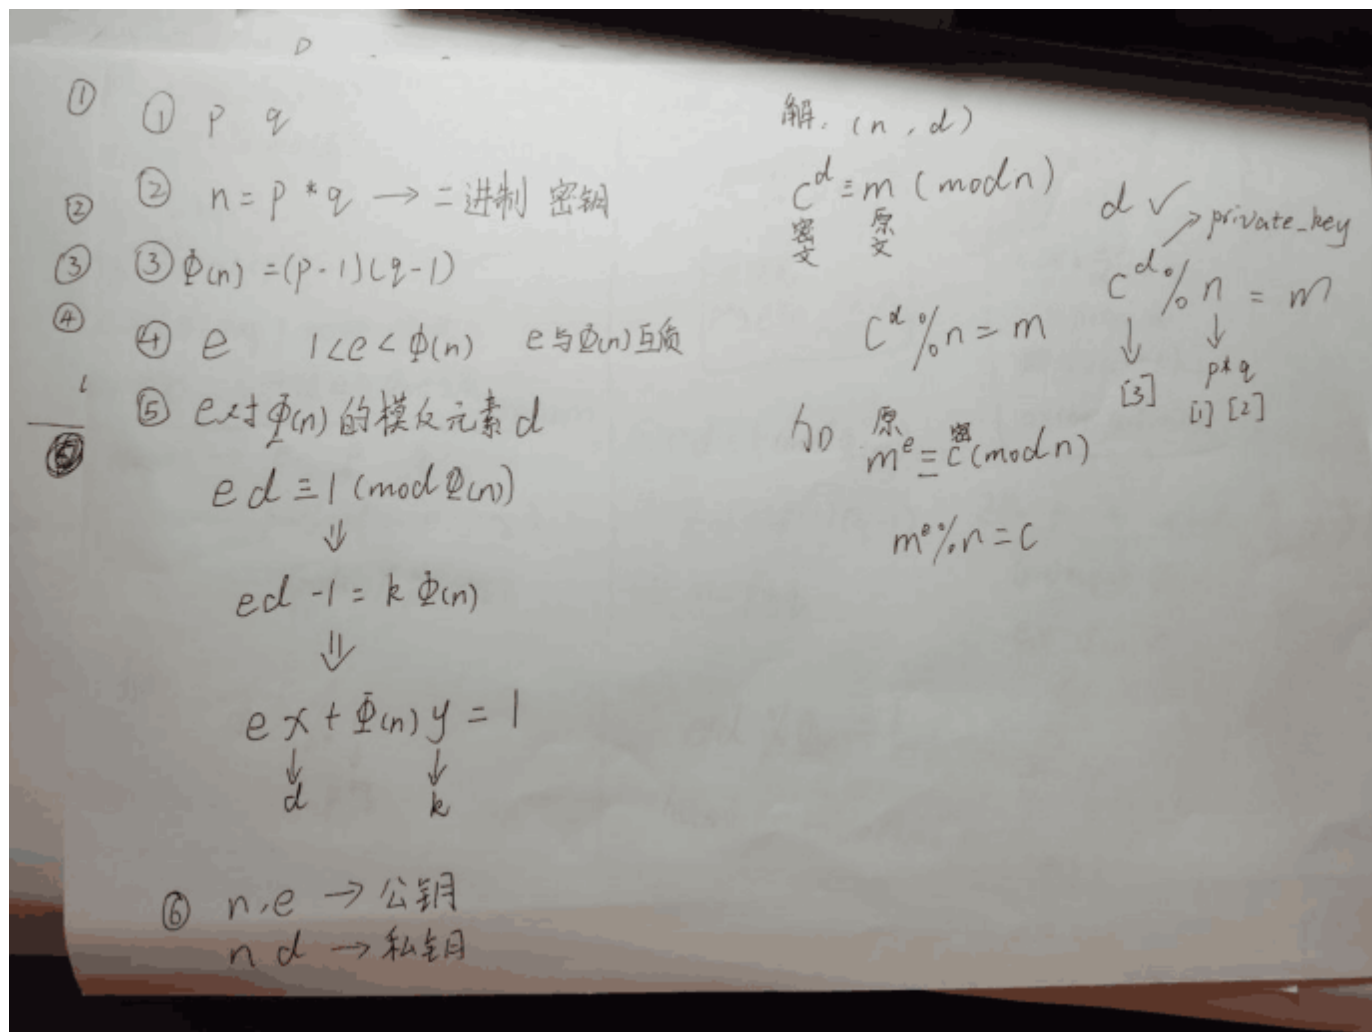 D
①
②
③
④
① p q
② n = p * q → 二进制 密钥
③ Φ(n) = (p-1)(q-1)
④ e 1<e<Φ(n) e与Φ(n)互质
⑤ e对Φ(n)的模反元素d
ed ≡ 1 (mod Φ(n))
⇓
ed - 1 = kΦ(n)
⇓
ex + Φ(n)y = 1
↓ ↓
d k
⑥ n, e → 公钥
n d → 私钥
解: (n, d)
c^d ≡ m (mod n)
密文 原文
c^d % n = m
加 原 密
m^e ≡ c (mod n)
m^e % n = c
d ✓
→ private_key
c^d % n = m
↓ ↓
[3] p*q
[1] [2]